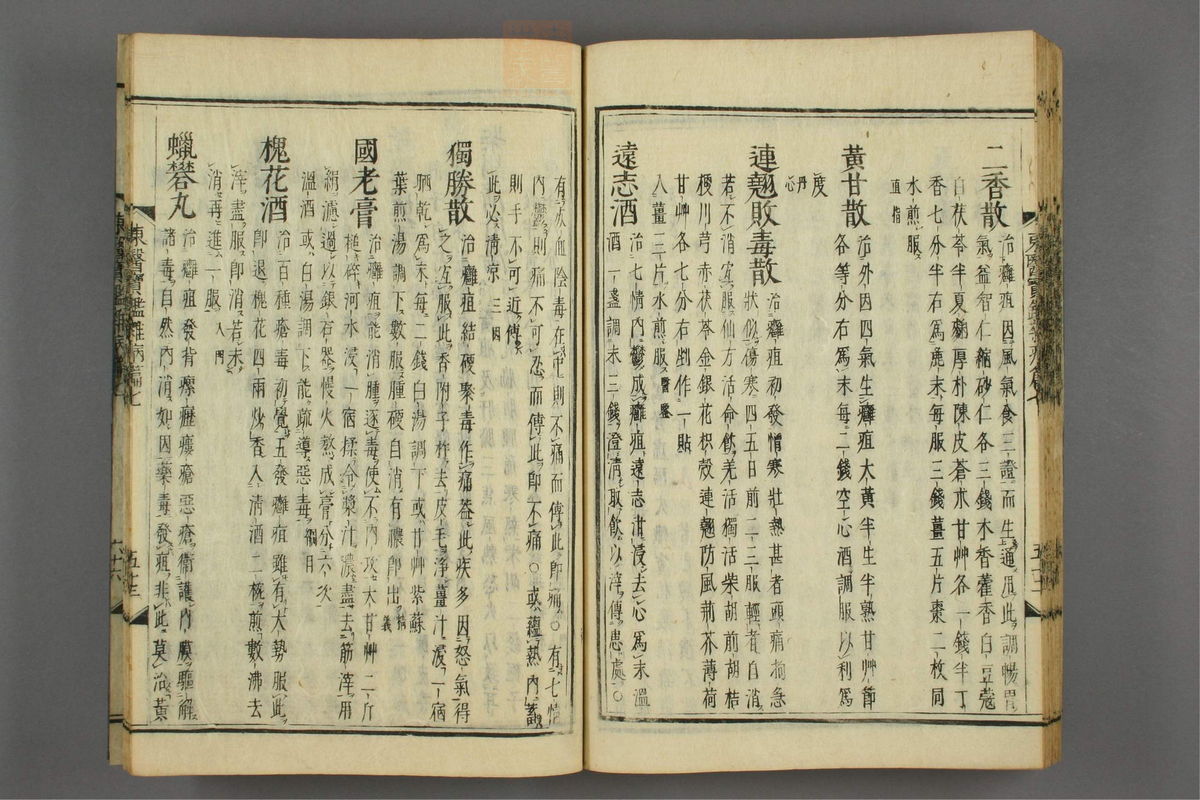 二香散治癰疽因風氣食三證而生通用此調暢胃
氣益智仁縮砂仁各三錢木香藿香白豆蔲
白茯苓半夏麯厚朴陳皮蒼朮甘艸各一錢半丁
香七分半右爲麁末每服三錢薑五片棗二枚同
水煎服直指
黃甘散治外因四氣生癰疽大黃半生半熟甘艸節
各等分右爲末每二錢空心酒調服以利爲
度丹心
連翹敗毒散治癰疽初發憎寒壯熱甚者頭痛拘急
狀似傷寒四五日前二三服輕者自消
若不消宜服仙方活命飮羌活獨活柴胡前胡桔
梗川芎赤茯苓金銀花枳殼連翹防風荊芥薄荷
甘艸各七分右剉作一貼
入薑三片水煎服醫鑒
遠志酒治七情內鬱成癰疽遠志泔浸去心爲末溫
酒一盞調末三錢澄淸取飮以滓傅患處○
有死血陰毒在治則不痛而傅此卽痛○有七情
內鬱則痛不可忍而傅此卽不痛○或蘊熱內蓄
則手不可近傅
此必淸凉三因
獨勝散治癰疽結硬聚毒作痛蓋此疾多因怒氣得
之宜服此香附子杵去皮毛淨薑汁浸一宿
晒乾爲末每二錢白湯調下或甘艸紫蘇
葉煎湯調下數服腫硬自消有膿卽出精義
國老膏治癰疽能消腫逐毒使不內攻大甘艸二斤
槌碎河水浸一宿揉令漿汁濃盡去筋滓用
絹濾過以銀石器慢火熬成膏分六次
溫酒或白湯調下能疏導惡毒綱目
槐花酒治百種瘡毒初覺五發癰疽雖有大勢服此
卽退槐花四兩炒香入淸酒二椀煎數沸去
滓盡服卽消若未
消再進一服入門
蠟礬丸治癰疽發背瘰癧瘻瘡惡瘡衛護內膜驅解
諸毒自然內消如因藥毒發疽非此莫治黃
東醫寶鑑雜病篇七
五十三